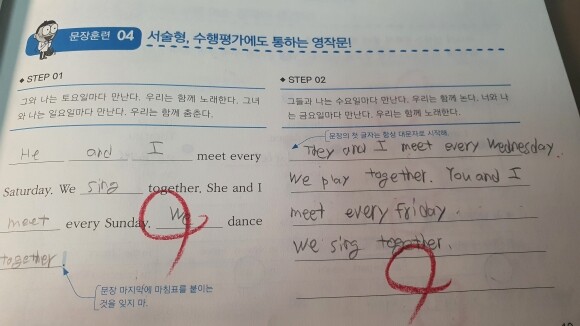 문장훈련 04 서술형, 수행평가에도 통하는 영작문!
◆ STEP 01
그와 나는 토요일마다 만난다. 우리는 함께 노래한다. 그녀
와 나는 일요일마다 만난다. 우리는 함께 춤춘다.
He and I meet every
Saturday. We sing together. She and I
meet every Sunday. We dance
together.
문장 마지막에 마침표를 붙이는
것을 잊지 마.
◆ STEP 02
그들과 나는 수요일마다 만난다. 우리는 함께 논다. 너와 나
는 금요일마다 만난다. 우리는 함께 노래한다.
문장의 첫 글자는 항상 대문자로 시작해.
They and I meet every Wednesday.
We play together. You and I
meet every Friday.
We sing together.